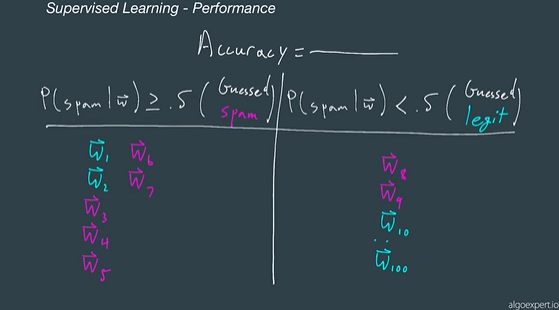 Supervised Learning - Performance
Accuracy = ————
P(spam | w⃗) ≥ .5 (Guessed spam) P(spam | w⃗) < .5 (Guessed legit)
w⃗₁ w⃗₆
w⃗₂ w⃗₇
w⃗₃ w⃗₈
w⃗₄ w⃗₉
w⃗₅ w⃗₁₀
..
w⃗₁₀₀
algoexpert.io